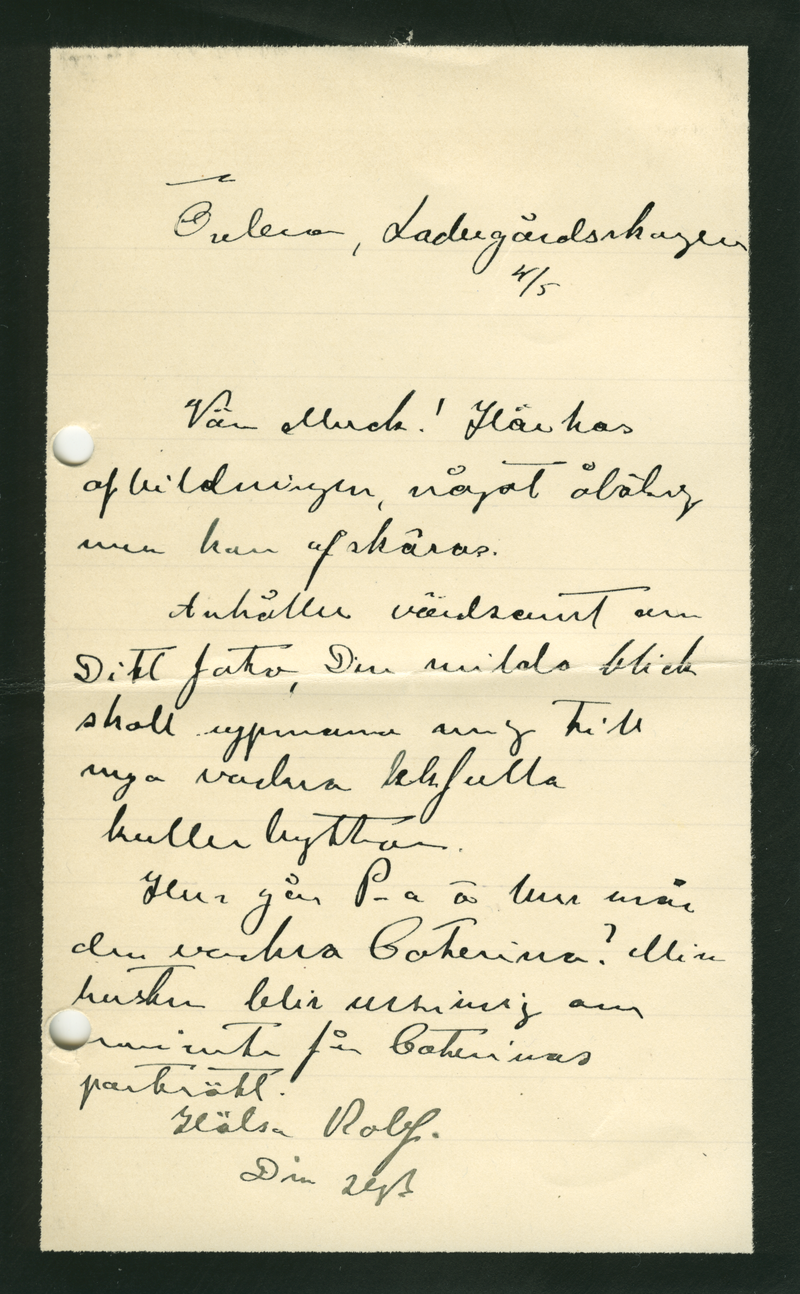 Ladugårdshagen
4/5
Vän Munck! Härhos
afbildningen, något åbäklig
men kan afskäras.
Anhåller vördsamt om
Ditt foto, Din milda blick
skall uppmana mig till
nya vackra
kullerbyttor.
Hur går P-a o hur mår
den vackra Caterina? Min
hustru blir ursinnig om
inte får Caterinas
porträtt.
Hälsa Rolf.
Din